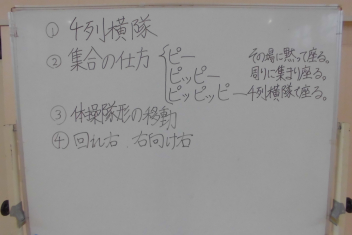 ① 4列横隊
② 集合の仕方 ピー その場に黙って座る。
ピッピー 周りに集まり座る。
ピッピッピー 4列横隊で座る。
③ 体操隊形の移動
④ 回れ右、右向け右